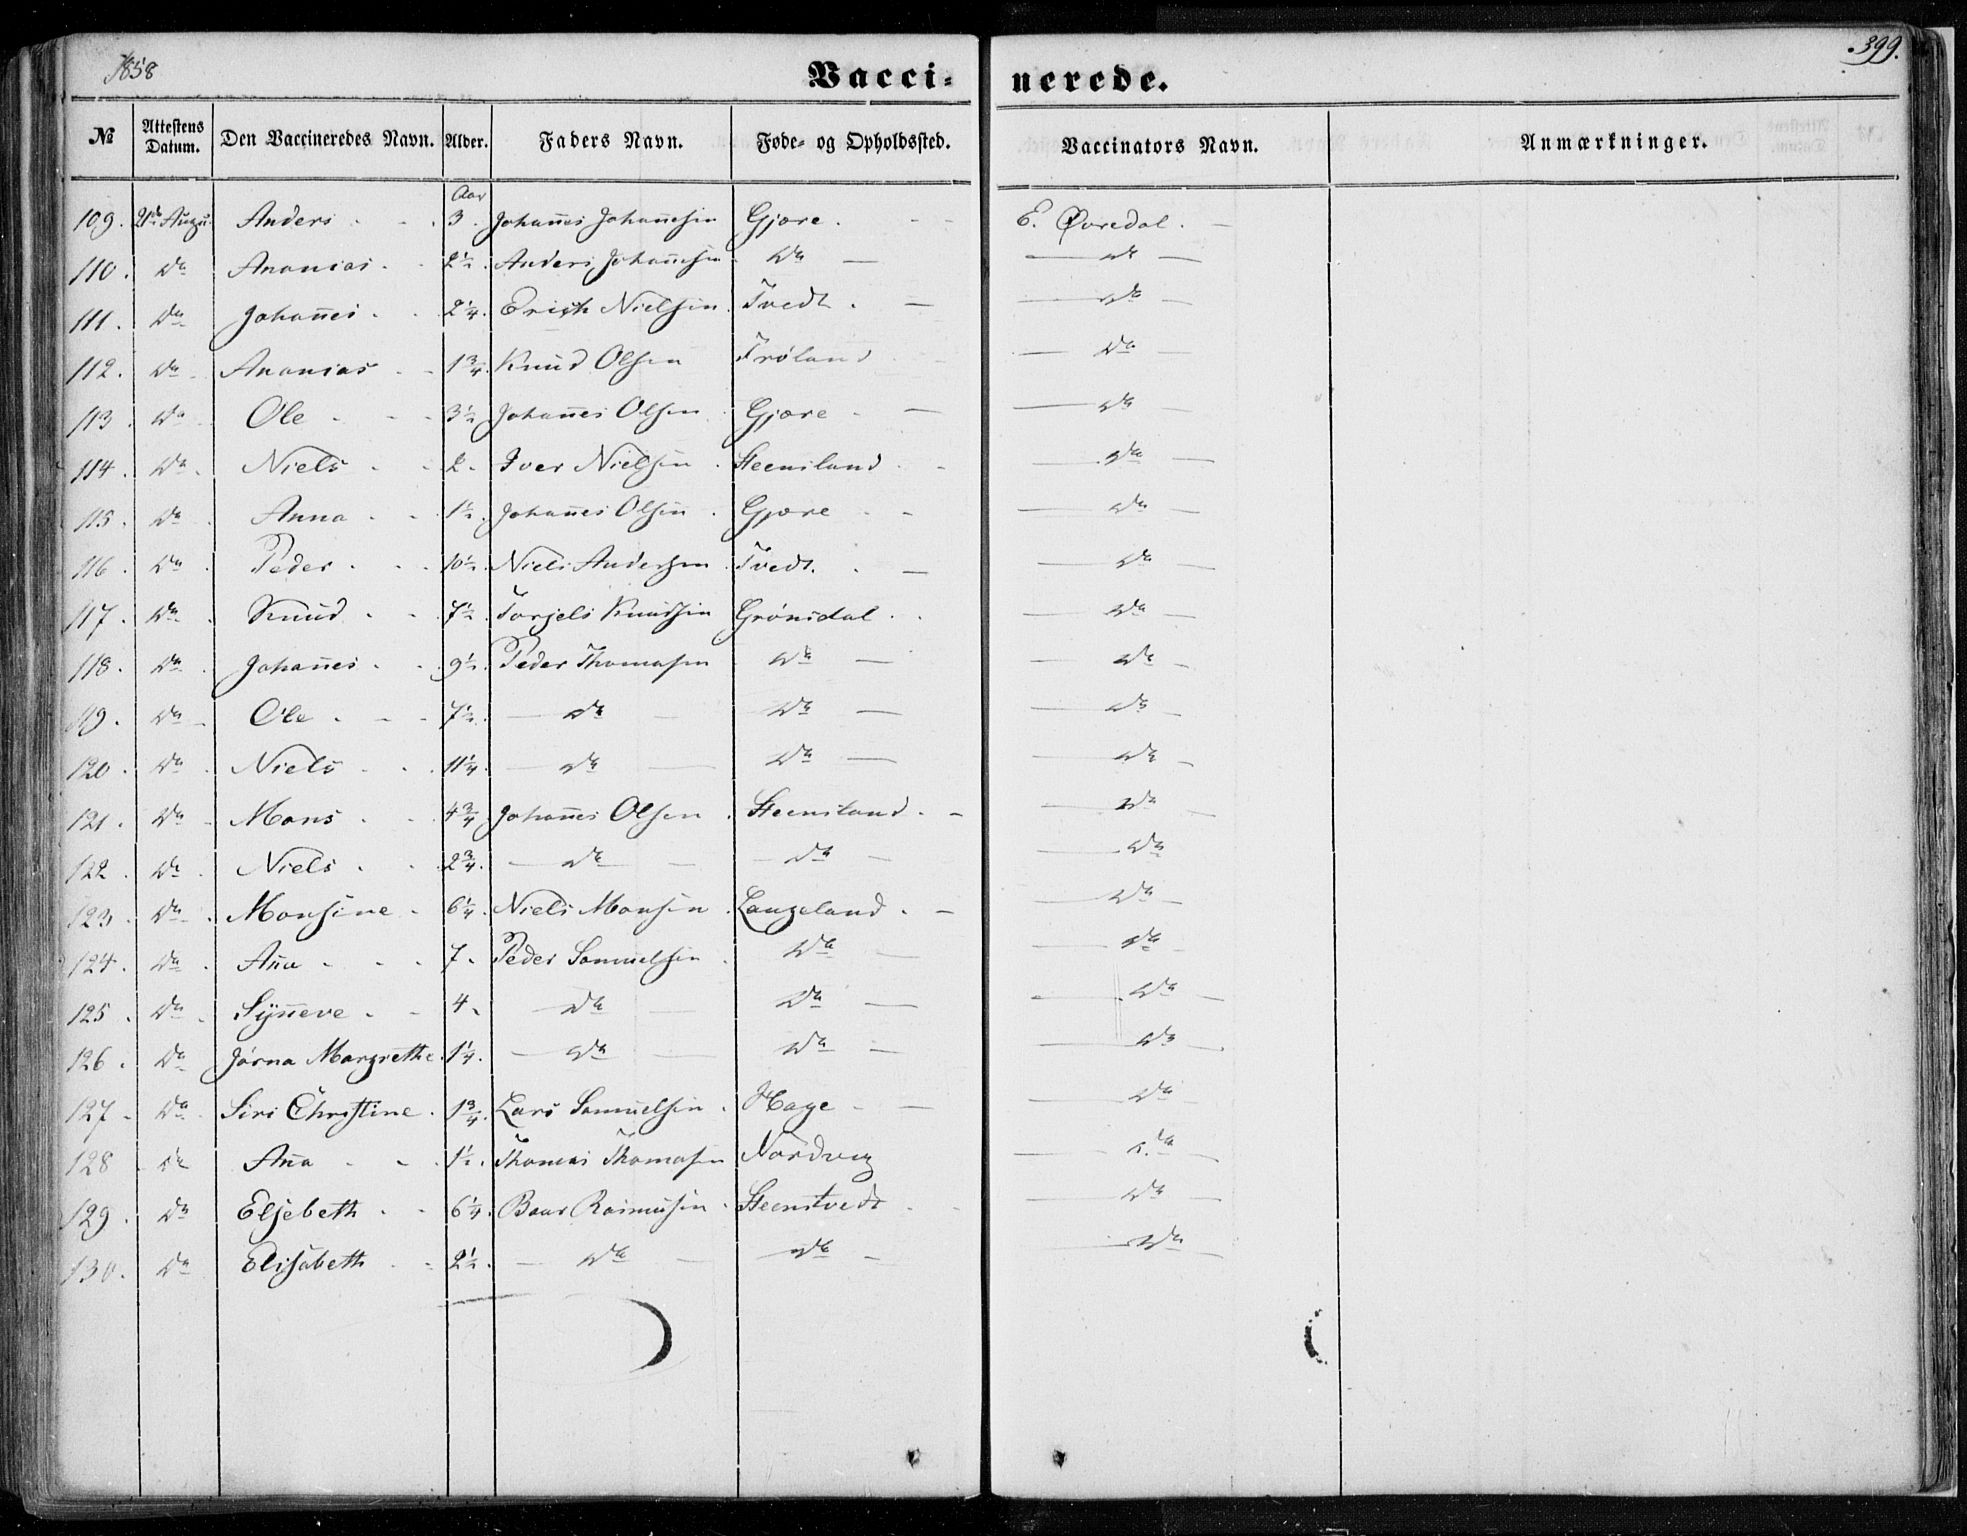 1858 Vaccinerede. 399.
№ Attestens Datum. Den Vaccineredes Navn. Alder. Faders Navn. Føde- og Opholdssted. Vaccinators Navn. Anmærkninger.
Aar
109. Augu. Anders - - 3. Johan̄es Johan̄esen Gjære. - - E. Øvredal. -
110. Do Ananias. - 2½. Anders Johan̄esen Do — — do —
111. Do Johan̄es. - 2¼. Erich Nielsen. Tvedt. — — do —
112. Do - Ananias - - 1¾. Knud Olsen Trøland - — Do —
113. Do - Ole - - - 3½ Johan̄es Olsen. Gjære - — — Do —
114. Do. Niels - - 2. Iver Nielsen. Steensland. - — Do —
115. Do. Anna - - 1½. Johan̄es Olsen. Gjære - - — Do —
116. Do. Peder. - - 10½. Niels Andersen. Tvedt. . — — Do —
117. Do. Knud - - 7½. Torjels Knudsen Grönsdal. . — Do —
118. Do. Johan̄es. - 9½. Peder Thomasen Do — — Do —
119. Do - Ole. - - 7½. — Do — Do — — Do —
120. Do. Niels - - 11¼. — Do — Do — — Do —
121. Do - Mons - - 4¾. Johan̄es Olsen. Steensland. - — Do —
122. Do. Niels. - 2¾. — Do — — Do — — Do
123. Do. Monsine. 6¼. Niels Monsen. Langeland. - — Do —
124. Do. An̄a - - - 7. Peder Samuelsen. Do — — Do —
125. Do. Syn̄eve. - 4. — Do — Do — — Do —
126. Do Jórna Margrethe. 1¼. — Do — Do — — Do —
127. Do. Siri Christine. 1¾. Lars Samuelsen. Hage - — — Do —
128. do An̄a - - 1½. Thomas Thomasen Nordvig — do —
129. Do Elsebeth - - 6¼. Baar Rasmusen. Steenstvedt - - — Do —
130. Do Elisabeth - - 2½. — Do — — Do — — Do —